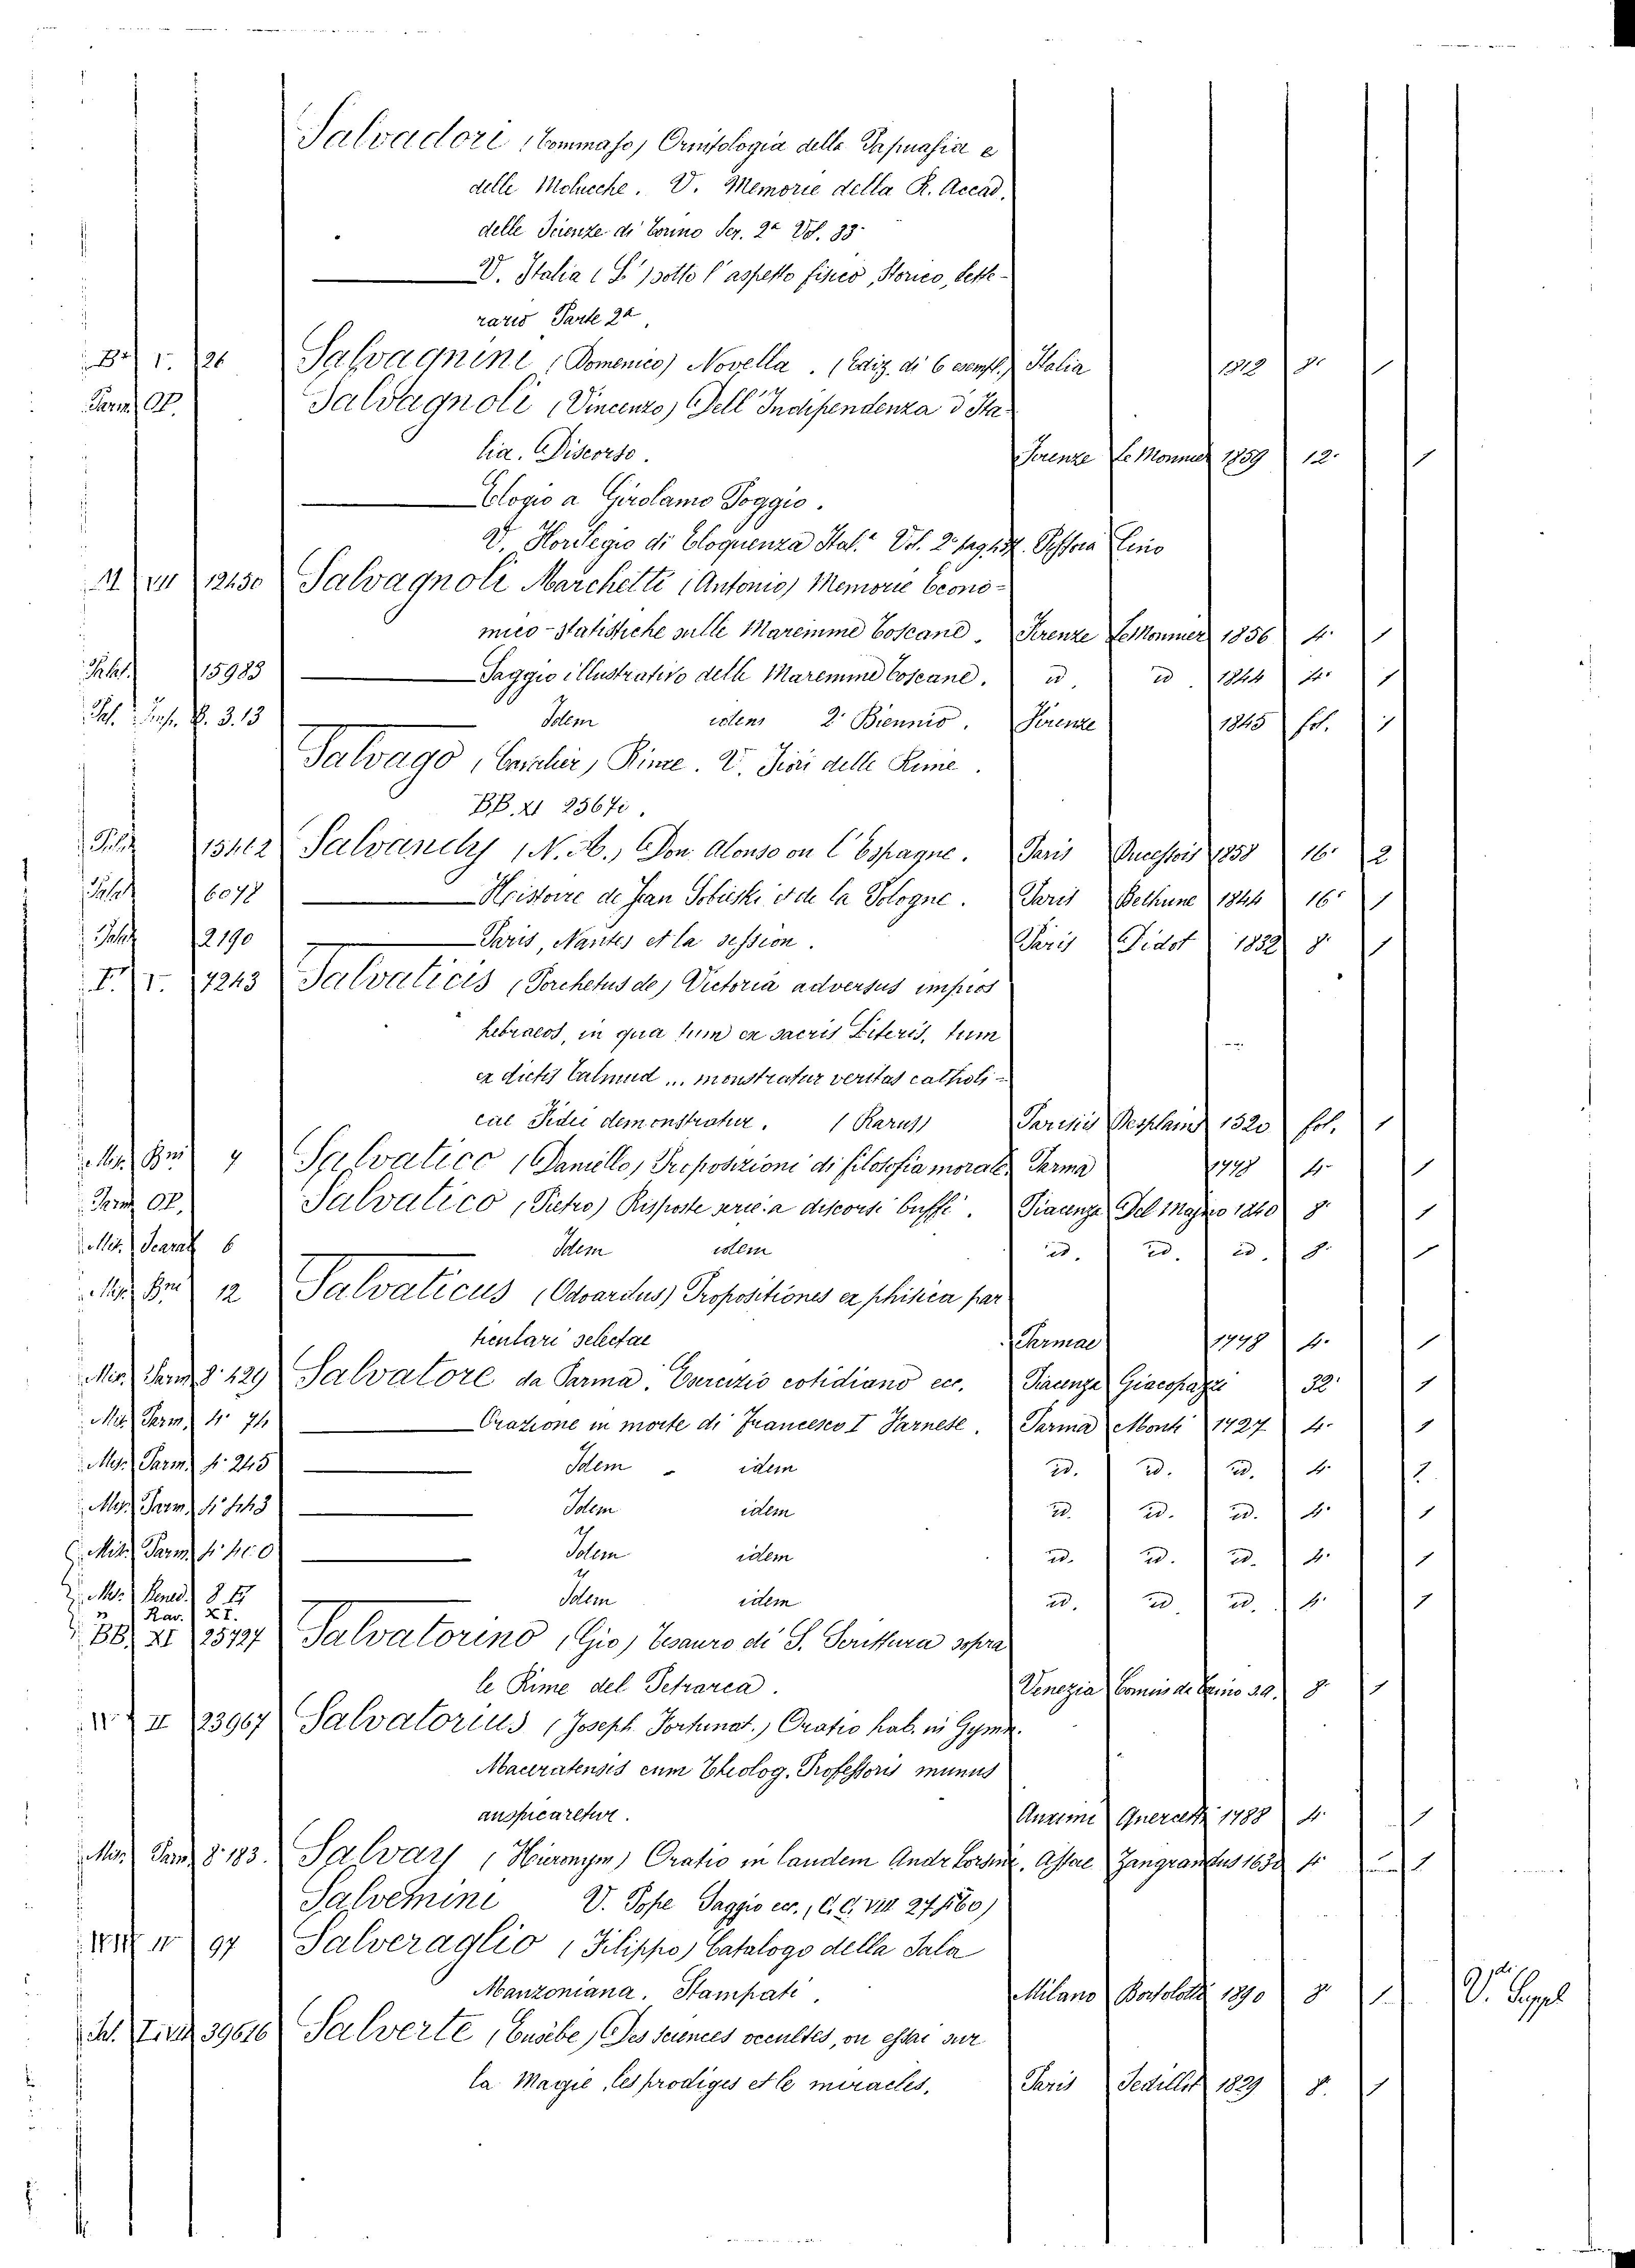 Salvadori (Tommaso) Ornitologia della Papuasia e
delle Molucche. V. Memorie della R. Accad.
delle Scienze di Torino Ser. 2a Vol. 33
V. Italia (L') sotto l'aspetto fisico, storico, lette-
rario Parte 2a.
1. 26 Salvagnini (Domenico) Novella. (Ediz. di 6 esempl.) Italia 1812 8°
Parm OP. Salvagnoli (Vincenzo) Dell'Indipendenza d'Ita
lia. Discorso. Firenze Le Monnier 1859 12° 1
Elogio a Girolamo Poggio.
V. Florilegio di Eloquenza Ital. Vol. 2°
VII 12430 Salvagnoli Marchetti (Antonio) Memorie Econo-
mico-statistiche sulle Maremme Toscane. Firenze Le Monnier 1856 4° 1
Palat. 15983 Saggio illustrativo delle Maremme Toscane. id. id. 1844 4° 1
3.13 Idem idem 2° Biennio. Firenze 1845 fol. 1
Salvago, Rime. V. Fiori delle Rime.
BB. XI 25671.
Palat 15412 Salvandy (N. A.) Don Alonso ou l'Espagne. Paris 1858 16° 2
Palat 6078 Histoire de Jean Sobieski et de la Pologne. Paris Bethune 1844 16° 1
Palat 2190 Paris, Nantes et la session. Paris Didot 1832 8° 1
I. V. 7243 Salvaticis (Porchetus de) Victoria adversus impios
hebraeos, in qua tum ex sacris Literis, tum
ex dictis Talmud ... monstratur veritas catholi-
cae Fidei demonstratur. (Rarus) Parisiis Desplains 1520 fol. 1
Salvatico (Daniello) Proposizioni di filosofia morale. Parma 4° 1
Parm OP. Salvatico (Pietro) Risposte serie a discorsi buffi. Piacenza Del Majno 1840 8° 1
Mis. Scarab 6 Idem idem id. id. id. 8° 1
12 Salvaticus (Odoardus) Propositiones ex phisica par
ticulari selectae Parmae 1748 4° 1
Mis. Parm 8° 429 Salvatore da Parma. Esercizio cotidiano ecc. Piacenza Giacopazzi 32° 1
Mis. Parm. 4° 74 Orazione in morte di Francesco I Farnese. Parma Monti 1727 4° 1
Mis. Parm. 4° 245 Idem idem id. id. id. 4° 2
Mis. Parm. Idem idem id. id. id. 4° 1
Mis. Parm. Idem idem id. id. id. 4° 1
Mis. Bened. 8° Idem idem id. id. id. 4° 1
" Rav. XI.
BB. XI 25727 Salvatorino (Gio) Tesauro di S. Scrittura sopra
le Rime del Petrarca. Venezia Comin de Trino s.a. 8° 1
II 23967 Salvatorius (Joseph Fortunat.) Oratio hab. in Gymn.
Maceratensis cum Theolog. Professoris munus
auspicaretur. Auximi Quercetti 1788 4° 1
Mis. Parm 8° 183. Salvay (Hieronym) Oratio in laudem Andr Corsini. Assae Zangrandus 1630 4° 1
Salvemini V. Pope Saggio ecc. (C.C. VIII 27560)
97 Salveraglio (Filippo) Catalogo della Sala
Manzoniana. Stampati. Milano Bortolotti 1890 8° 1 Vedi Suppl
39616 Salverte (Eusèbe) Des sciences occultes, ou essai sur
la Magie, les prodiges et le miracles. Paris Sedillot 1829 8° 1